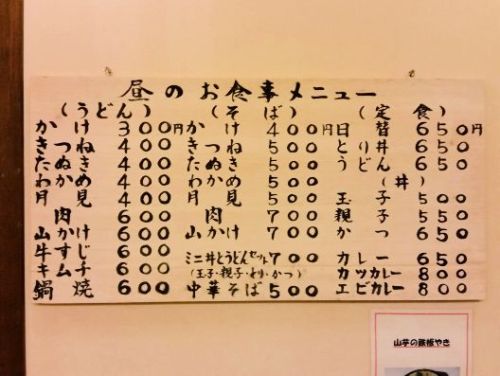 昼のお食事メニュー
(うどん)
かけ 300円
きつね 400
たぬき 400
わかめ 400
月見 400
肉 600
山かけ 600
牛すじ 600
キムチ 600
鍋焼 600
(そば)
かけ 400円
きつね 500
たぬき 500
わかめ 500
月見 500
肉 700
山かけ 700
ミニ丼とうどんセット 700
(玉子・親子・とり・かつ)
中華そば 500
(定食)
日替 650円
とり丼 650
とうどん 650
(丼)
玉子 500
親子 550
かつ 650
カレー 650
カツカレー 800
エビカレー 800
山芋の鉄板やき